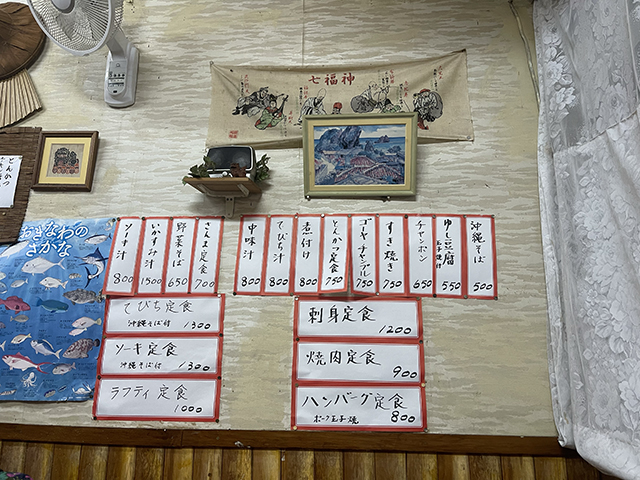 七福神
とんかつ
おきなわの
さかな
沖縄そば 500
ゆし豆腐 玉子焼付 550
チャンポン 650
すき焼き 750
ゴーヤーチャンプル 750
とんかつ定食 750
煮付け 800
てびち汁 800
中味汁 800
さんま定食 700
野菜そば 650
いかすみ汁 1500
ソーキ汁 800
てびち定食
沖縄そば付 1300
ソーキ定食
沖縄そば付 1300
ラフティ定食
1000
刺身定食
1200
焼肉定食
900
ハンバーグ定食
ポーク玉子焼 800